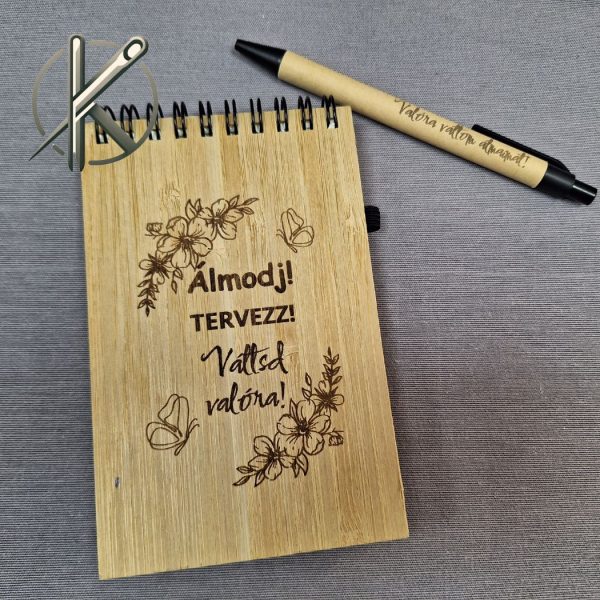 K
Álmodj!
TERVEZZ!
Váltsd
valóra!
Valóra váltom álmaimat!